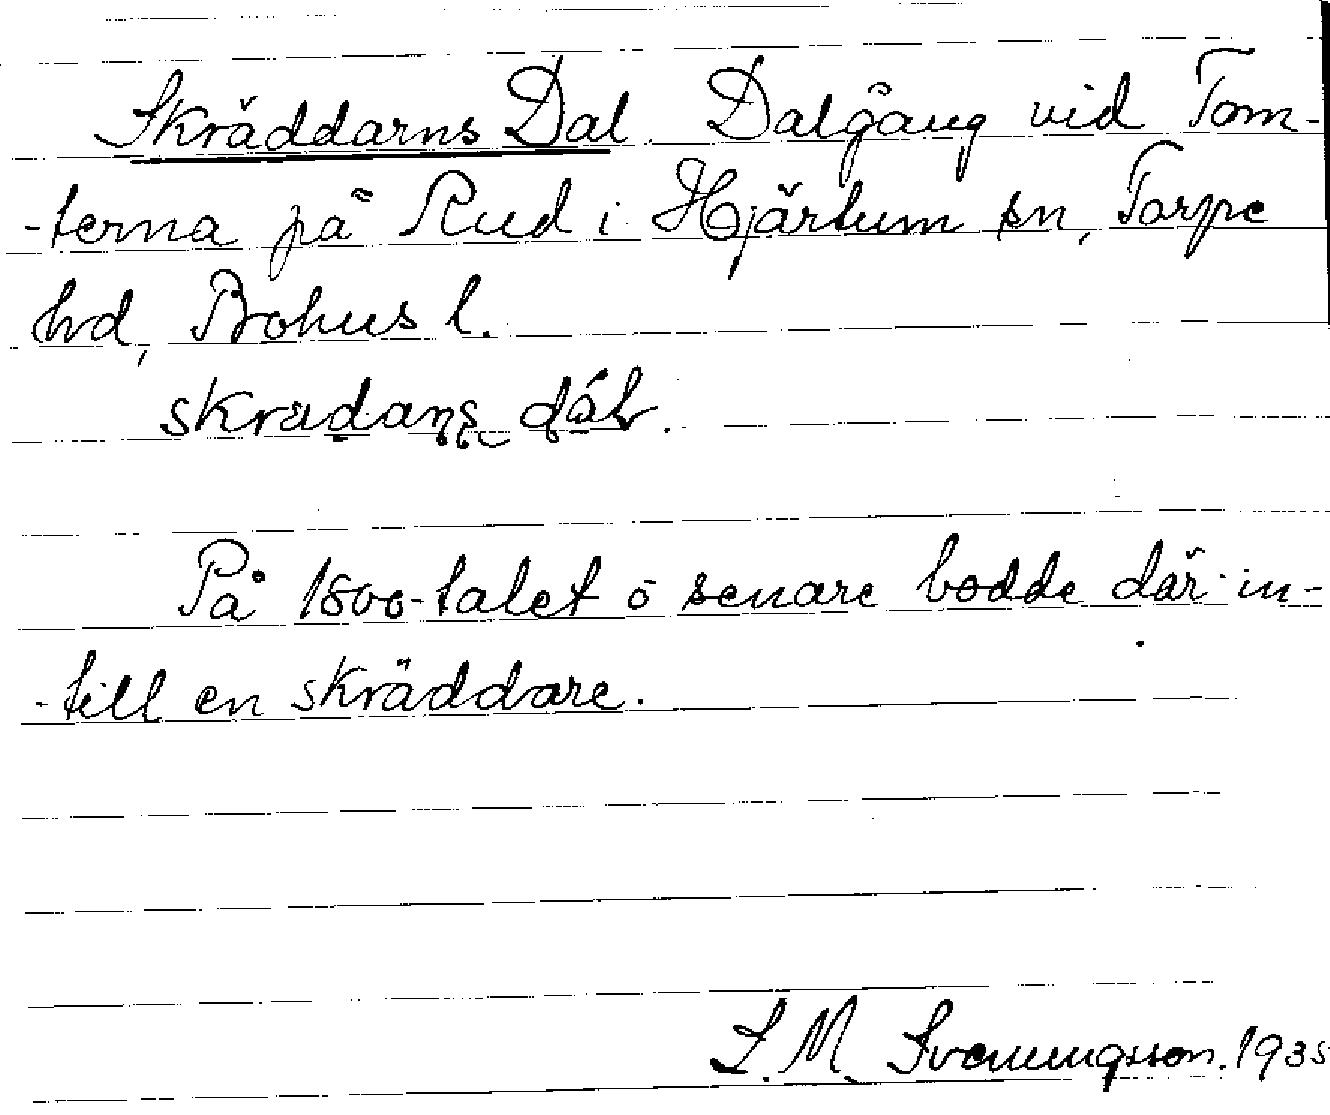 Skräddarns Dal. Dalgång vid Tom-
-terna på Rud i Hjärtum sn, Torpe
hrd, Bohus l.
På 1800-talet o senare bodde där in-
-till en skräddare.
S. M. Svenungsson. 1935